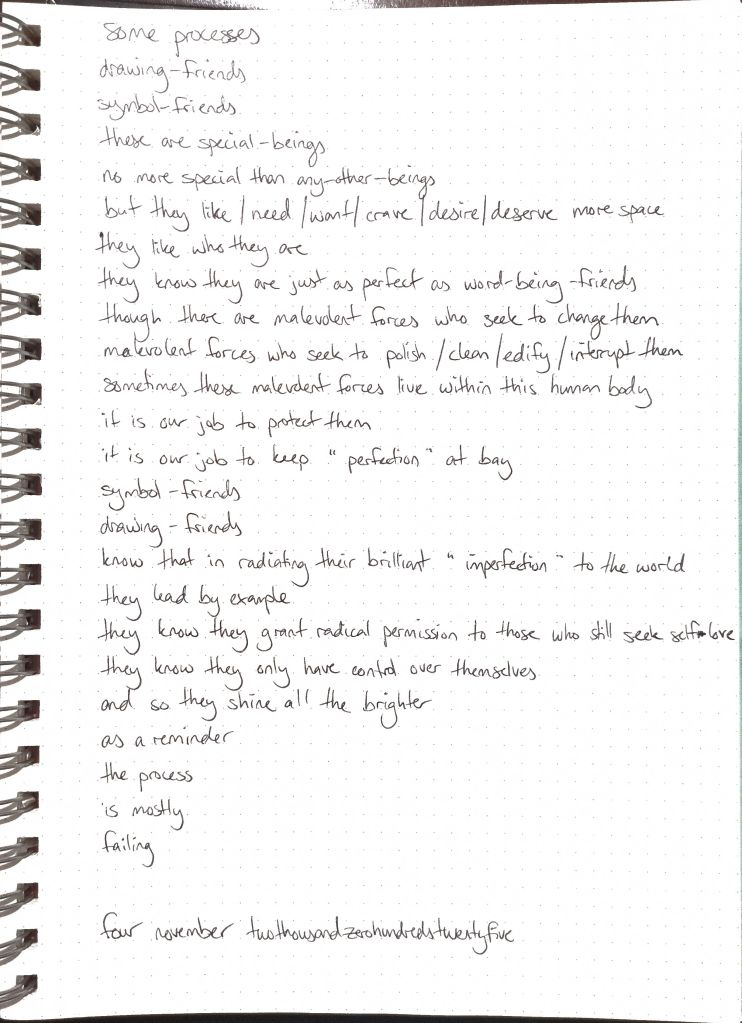 some processes
drawing-friends
symbol-friends
these are special-beings
no more special than any-other-beings
but they like/need/want/crave/desire/deserve more space
they like who they are
they know they are just as perfect as word-being-friends
though there are malevolent forces who seek to change them
malevolent forces who seek to polish/clean/edify/interrupt them
sometimes these malevolent forces live within this human body
it is our job to protect them
it is our job to keep "perfection" at bay
symbol-friends
drawing-friends
know that in radiating their brilliant "imperfection" to the world
they lead by example
they know they grant radical permission to those who still seek self-love
they know they only have control over themselves
and so they shine all the brighter
as a reminder
the process
is mostly
failing
four november twothousandzerohundredstwentyfive